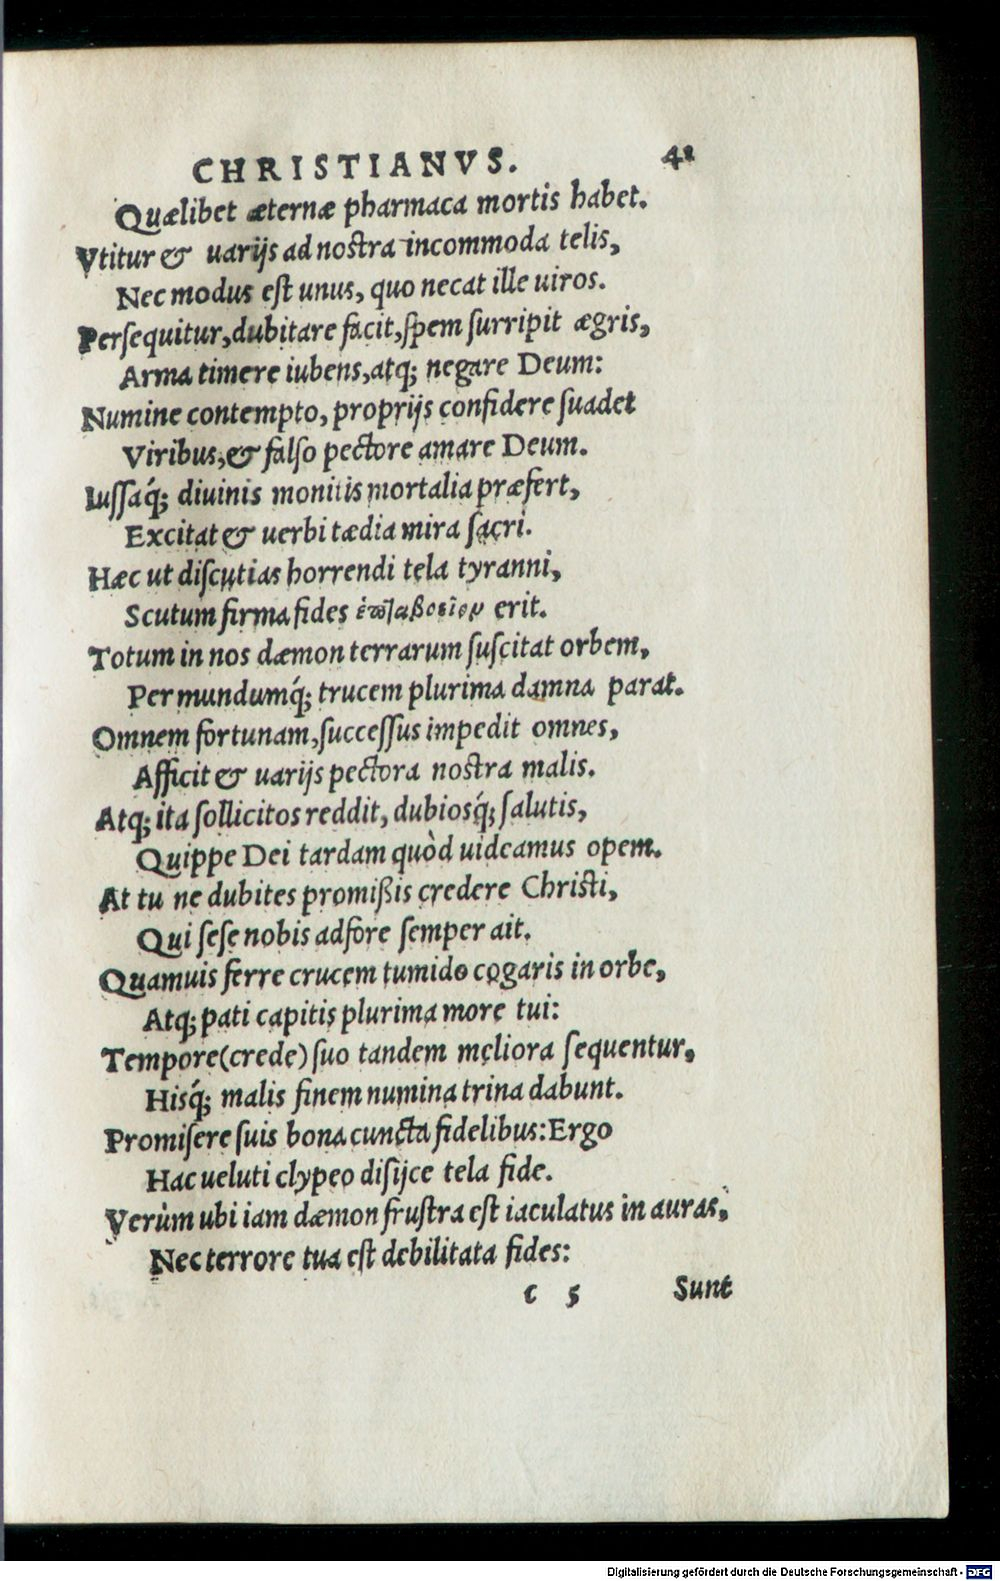 CHRISTIANVS. 41
Quælibet æternæ pharmaca mortis habet.
Vtitur & uarijs ad nostra incommoda telis,
Nec modus est unus, quo necat ille uiros.
Persequitur, dubitare facit, spem surripit ægris,
Arma timere iubens, atq; negare Deum:
Numine contempto, proprijs confidere suadet
Viribus, & falso pectore amare Deum.
Iussaq́; diuinis monitis mortalia præfert,
Excitat & uerbi tædia mira sacri.
Hæc ut discutias horrendi tela tyranni,
Scutum firma fides erit.
Totum in nos dæmon terrarum suscitat orbem,
Per mundumq́; trucem plurima damna parat.
Omnem fortunam, successus impedit omnes,
Afficit & uarijs pectora nostra malis.
Atq; ita sollicitos reddit, dubiosq́; salutis,
Quippe Dei tardam quòd uideamus opem.
At tu ne dubites promißis credere Christi,
Qui sese nobis adfore semper ait.
Quamuis ferre crucem tumido cogaris in orbe,
Atq; pati capitis plurima more tui:
Tempore (crede) suo tandem meliora sequentur,
Hisq́; malis finem numina trina dabunt.
Promisere suis bona cuncta fidelibus: Ergo
Hac ueluti clypeo disijce tela fide.
Verùm ubi iam dæmon frustra est iaculatus in auras,
Nec terrore tua est debilitata fides:
c 5 Sunt
Digitalisierung gefördert durch die Deutsche Forschungsgemeinschaft - DFG